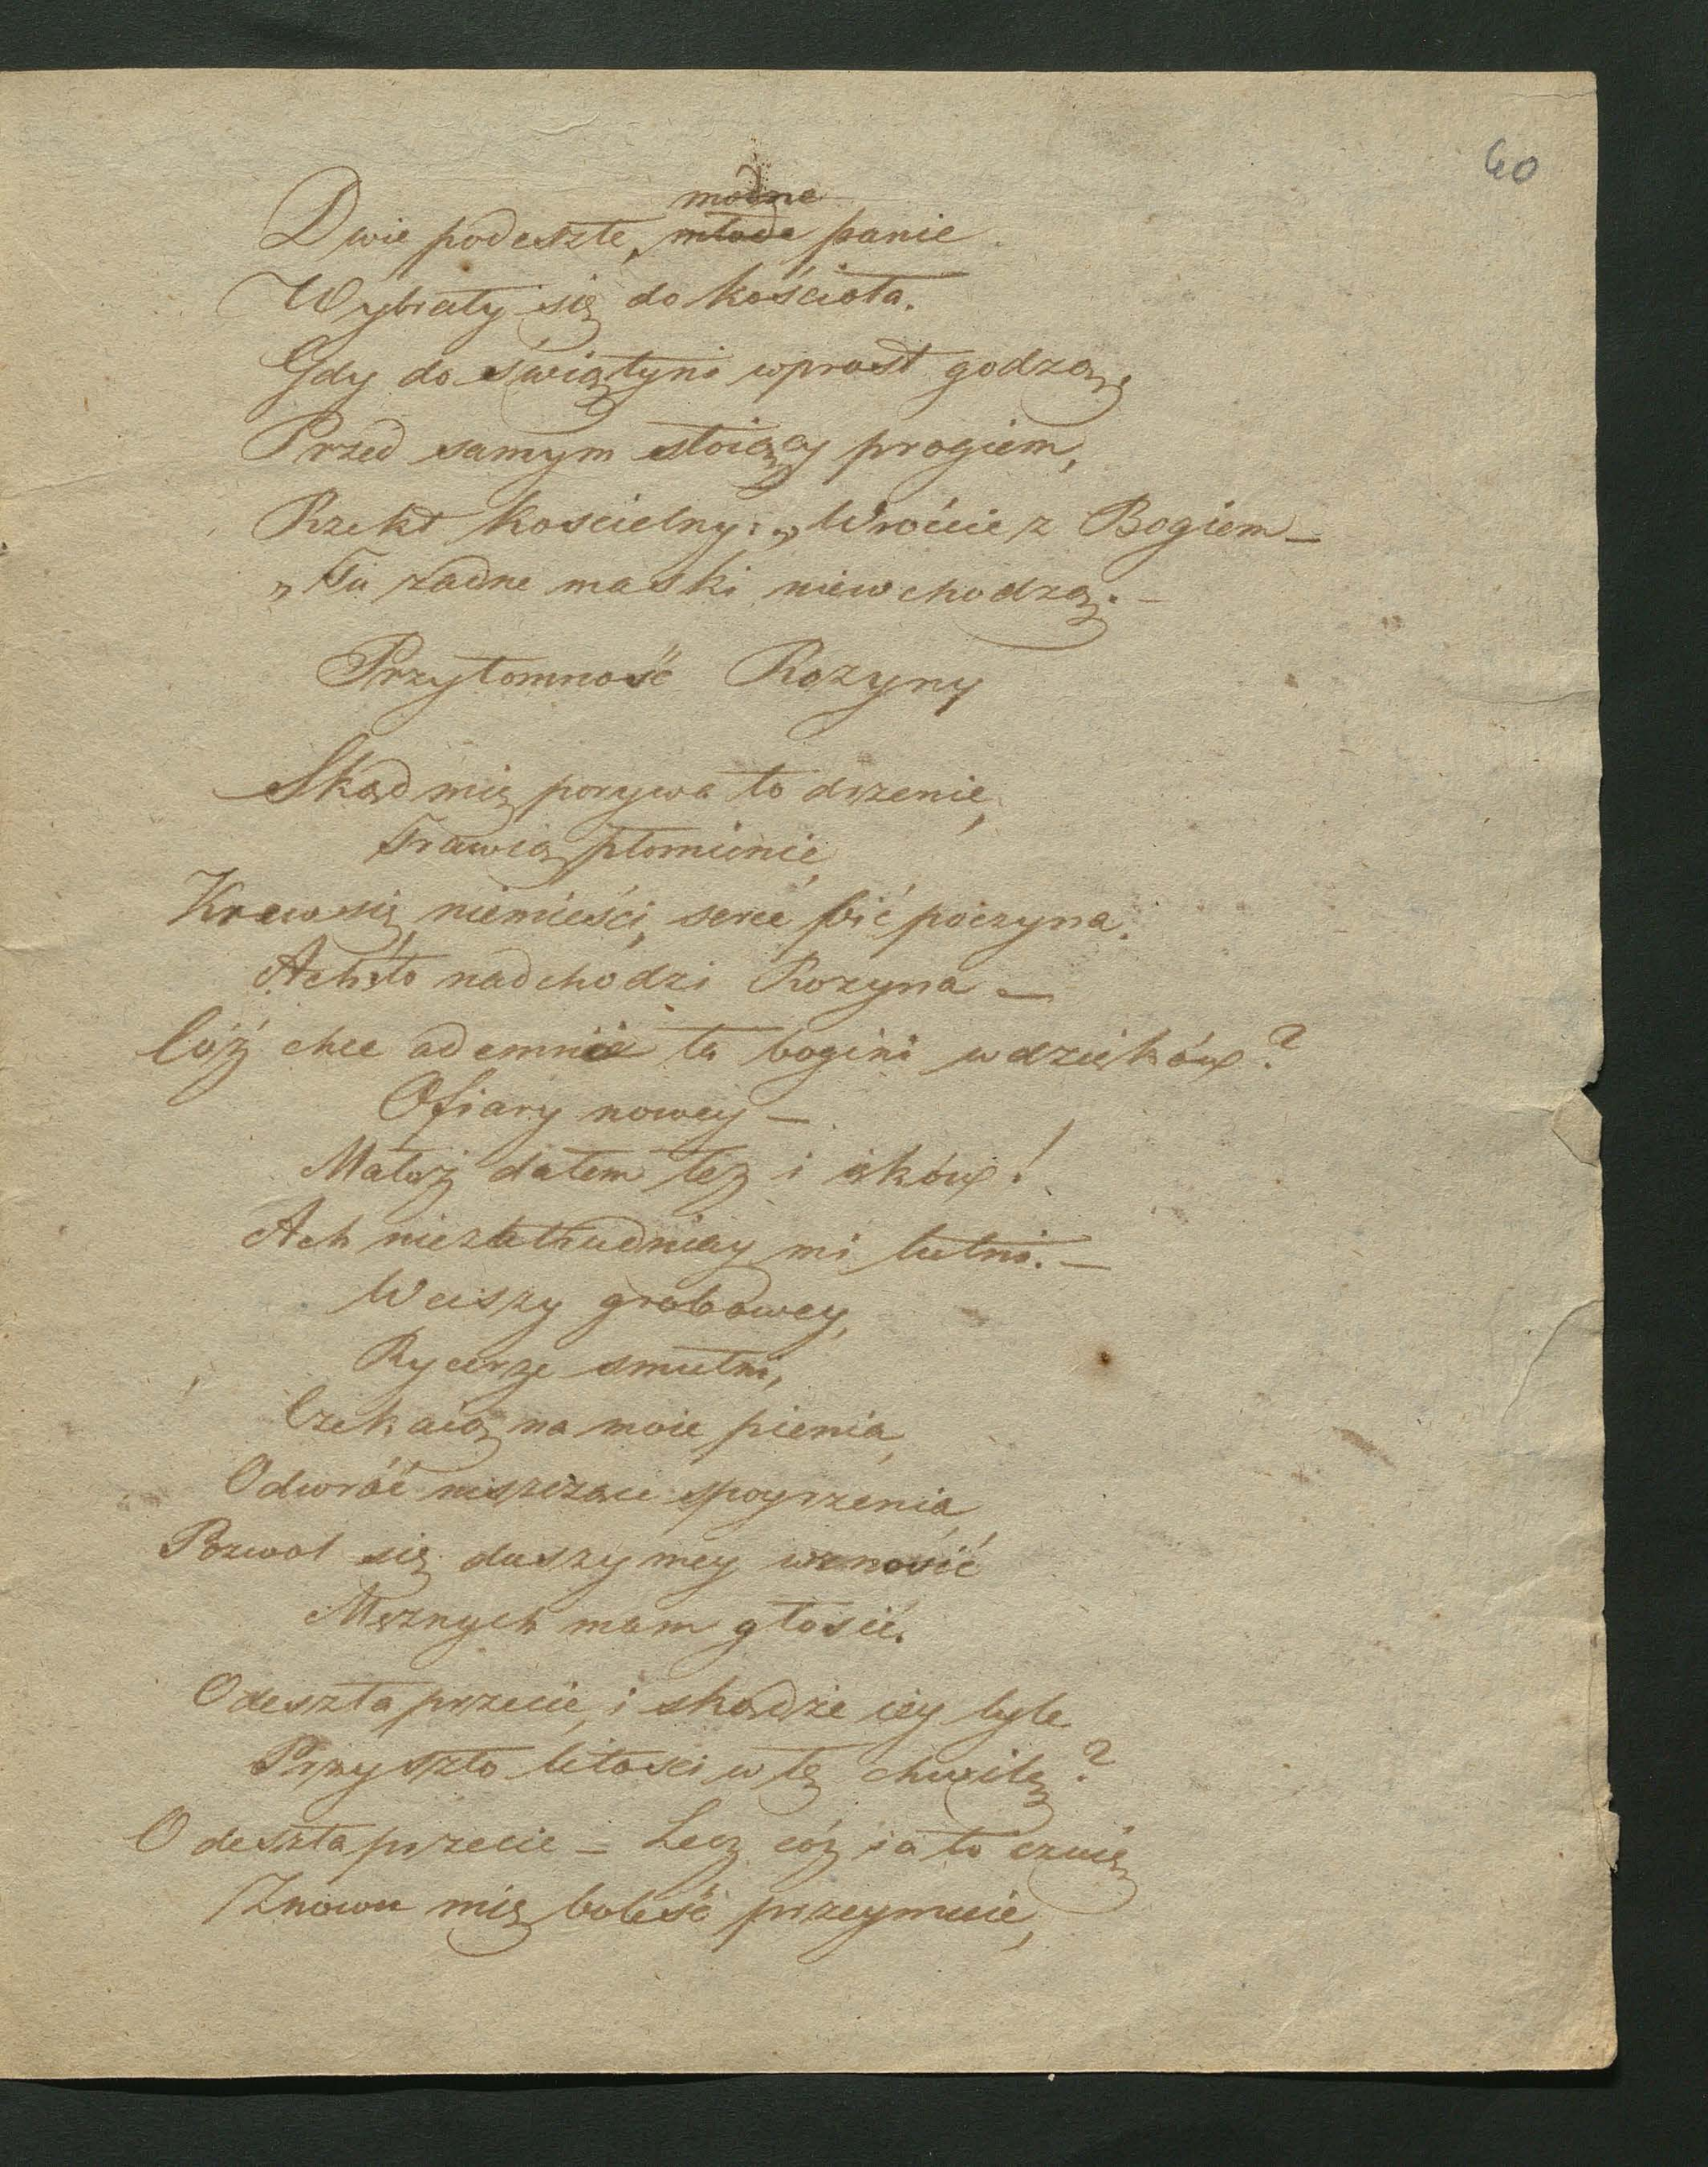 60
modne
Dwie podeszłe, młode panie
Wybrały się do kościoła.
Gdy do świątyni wprost godzą,
Przed samym stoiący progiem,
Rzekł kościelny: „Wróćcie z Bogiem—
„Tu żadne maski niewchodzą.—
Przytomność Rozyny
Skąd mię porywa to drzenie,
Trawią płomienie,
Krew się niemieści, serce bić poczyna.
Ach to nadchodzi Rozyna—
Cóż chce odemnie ta bogini wdzięków?
Ofiary nowey—
Małoż dałem łez i ięków!
Ach niezatrudniay mi lutni.—
W ciszy grobowey,
Rycerze smutni,
Czekaią na moie pienia,
Odwróć niszczące spoyrzenia,
Pozwol się duszy mey wznosić
Mężnych mam głosić.
Odeszła przecie, i skądże iey tyle
Przyszło litości w tę chwilę?
Odeszła przecie — Lecz cóż ia to czuię
Znowu mię boleść przeymuie,